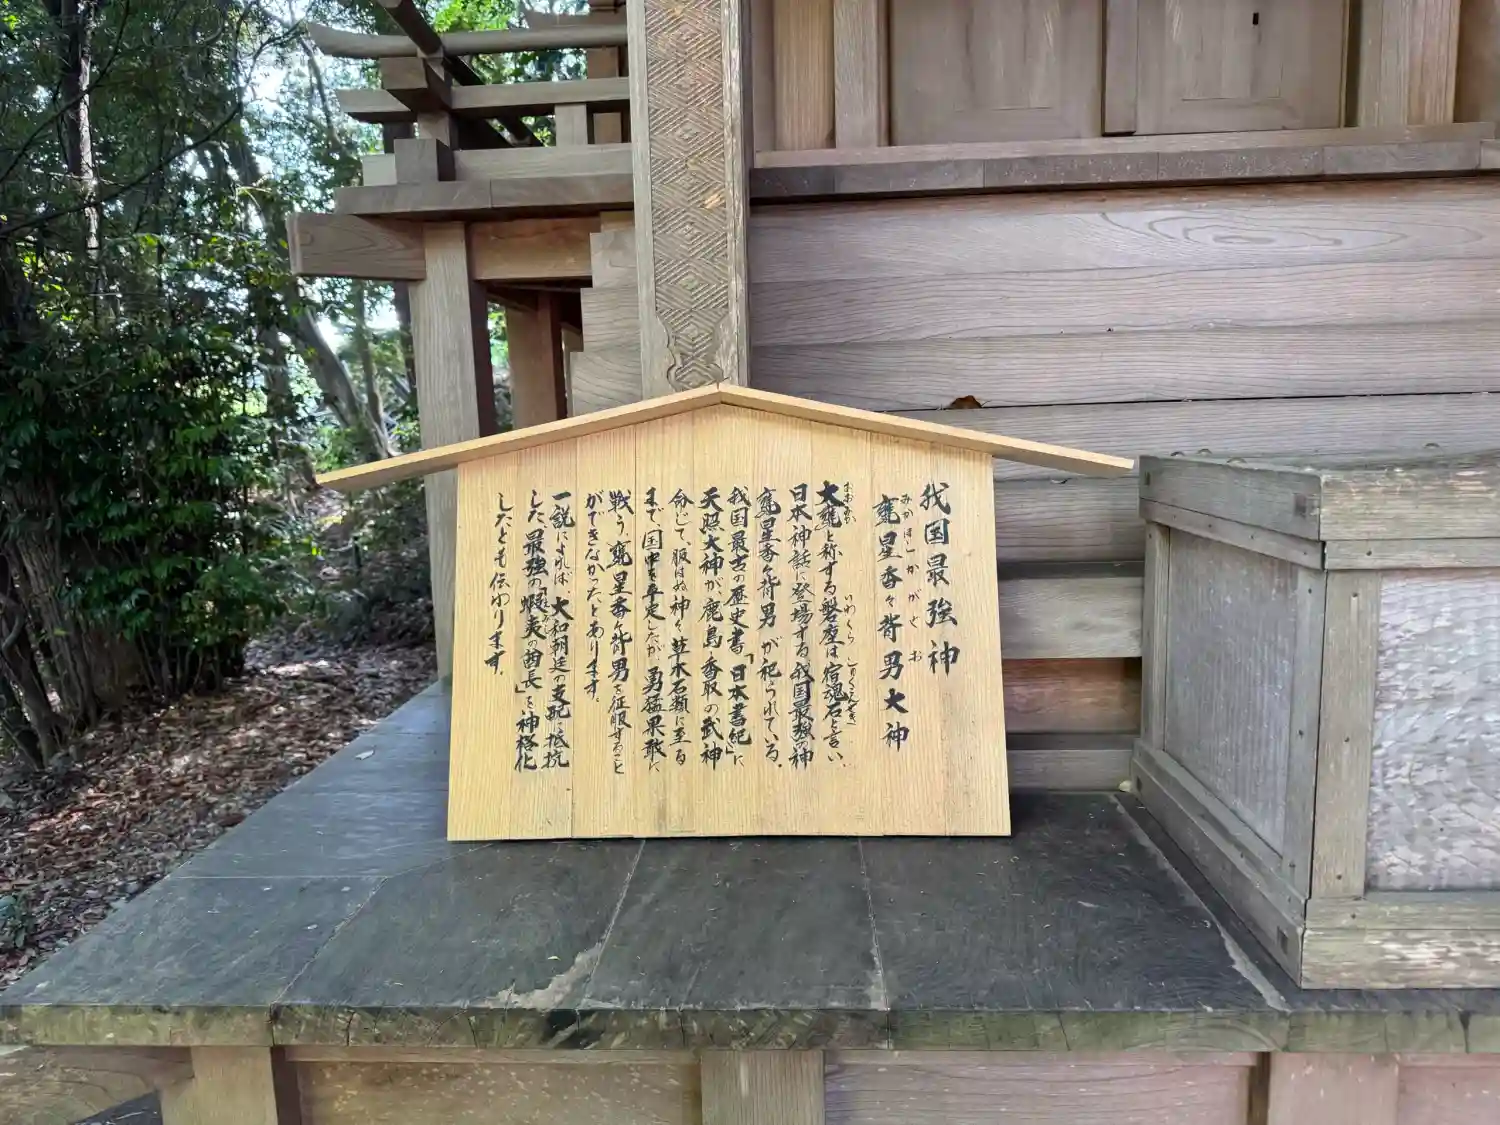 我国最強神
甕星香々背男大神
みかぼしかがせお
大甕と称する磐座は宿魂石と言い、
おおみか
いわくら
しゅくこんせき
日本神話に登場する我国最強の神
甕星香々背男が祀られている。
我国最古の歴史書「日本書紀」に
天照大神が鹿島・香取の武神
命じて、服はぬ神々、草木石類に至る
まで、国中を平定したが、勇猛果敢に
戦う、甕星香々背男を征服すること
ができなかったとあります。
一説によれば、大和朝廷の支配に抵抗
した最強の「蝦夷の酋長」を神格化
したとも伝わります。